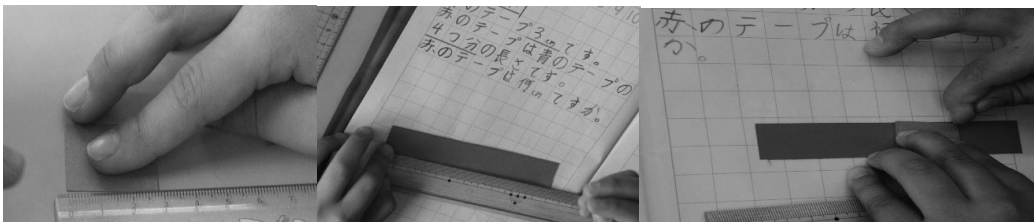 のテープ3cmです。
赤のテープは青のテープの
4つ分の長さです。
赤のテープは何cmですか。
赤のテープは何
か。